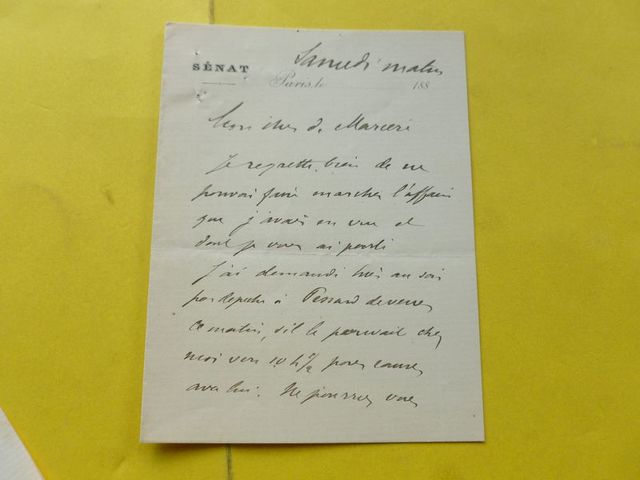 SÉNAT
Samedi matin
Paris, le 188
Mon cher de Marcère
Je regrette bien de ne
pouvoir faire marcher l'affaire
que j'avais en vue et
dont je vous ai parlé
J'ai demandé hier au soir
par dépêche à Pessard de venir
ce matin, s'il le pouvait chez
moi vers 10 h 1/2 pour causer
avec lui. Ne pourriez vous